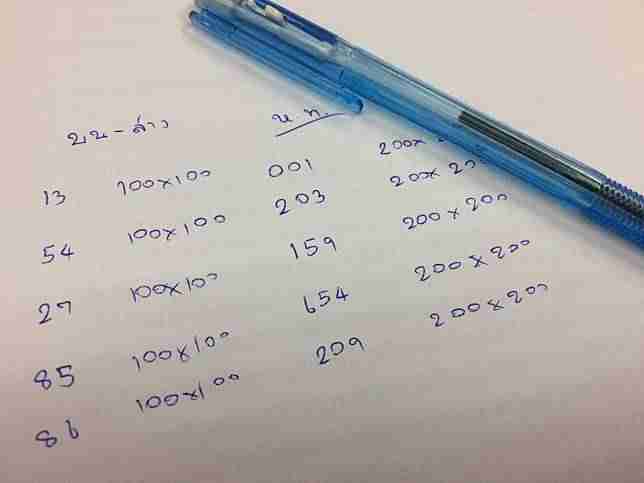 บน-ล่าง
13 100x100 001 200x
54 100x100 203 200x
27 100x100 159 200x200
85 100x100 654 200x200
86 100x100 209 200x200